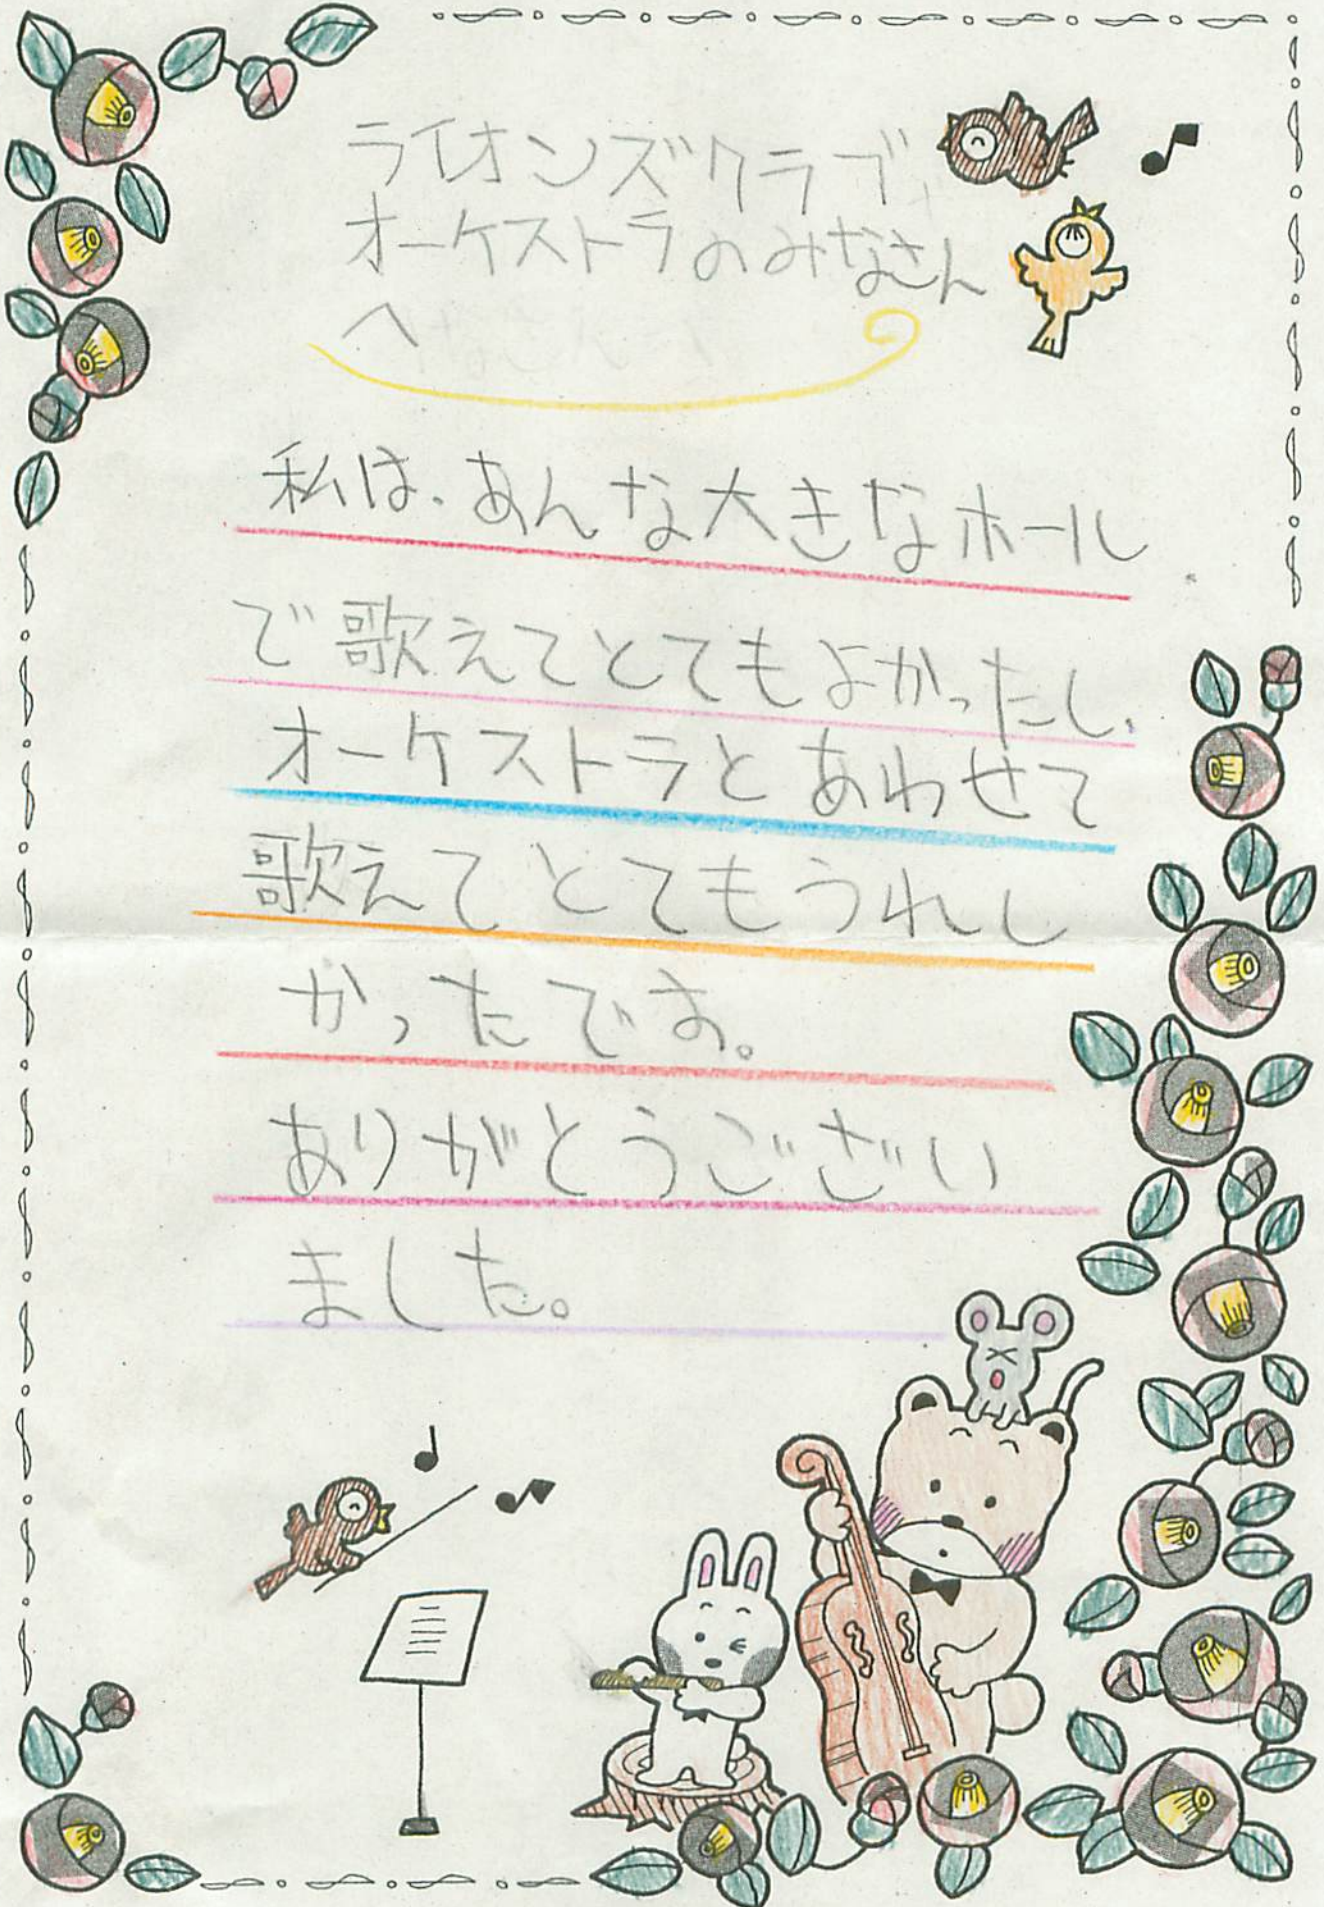 ライオンズクラブ、
オーケストラのみなさん
へ
私は、あんな大きなホール
で歌えてとてもよかったし、
オーケストラとあわせて
歌えてとてもうれし
かったです。
ありがとうござい
ました。